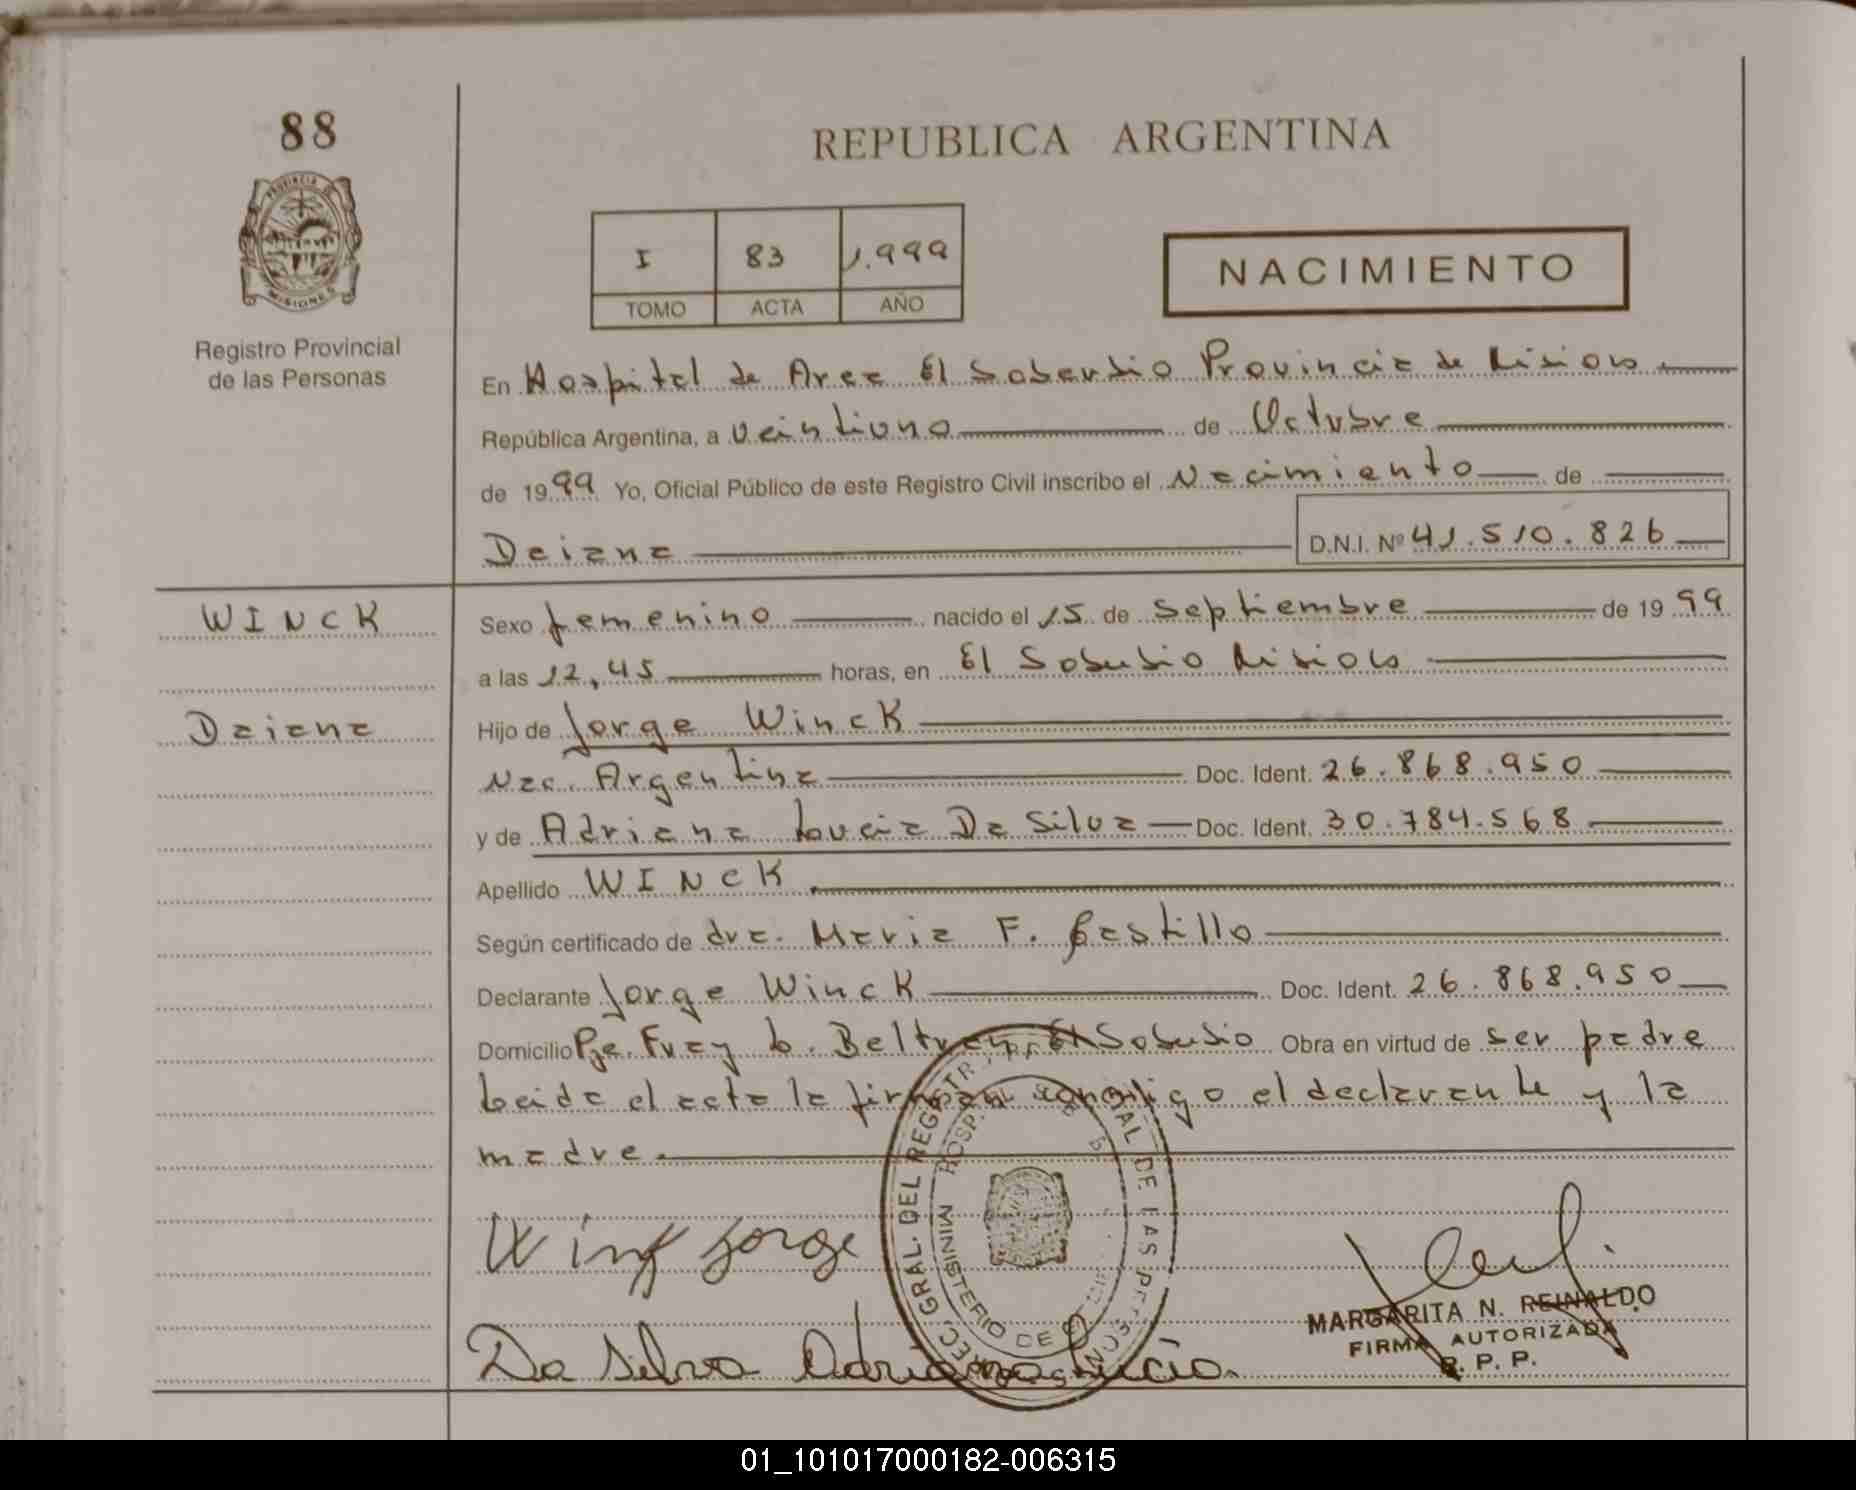 88
REPUBLICA ARGENTINA
PROVINCIA DE
MISIONES
I 83 1.999
TOMO ACTA AÑO
NACIMIENTO
Registro Provincial
de las Personas
En Hospital de Area El Soberbio Provincia de Misions
República Argentina, a veintiuno de Octubre
de 1999 Yo, Oficial Público de este Registro Civil inscribo el Nacimiento de
Daiana D.N.I. Nº 41.510.826
WINCK
Sexo femenino nacido el 15 de Septiembre de 1999
a las 12,45 horas, en El Soberbio Misions
Daiana
Hijo de Jorge Winck
Nac. Argentina Doc. Ident. 26.868.950
y de Adriana Lucia Da Silva Doc. Ident. 30.784.568
Apellido WINCK
Según certificado de dra. Maria F. Castillo
Declarante Jorge Winck Doc. Ident. 26.868.950
Domicilio Pje. Fray L. Beltran, El Soberbio Obra en virtud de ser padre
Leida el acta la firman conmigo el declarante y la
madre.
Jorge
DIREC. GRAL. DEL REGISTRO DE LAS PERSONAS
MINISTERIO DE HOSP.
Da Silva Adriana Lucia.
MARGARITA N. REINALDO
FIRMA AUTORIZADA
R. P. P.
01_101017000182-006315